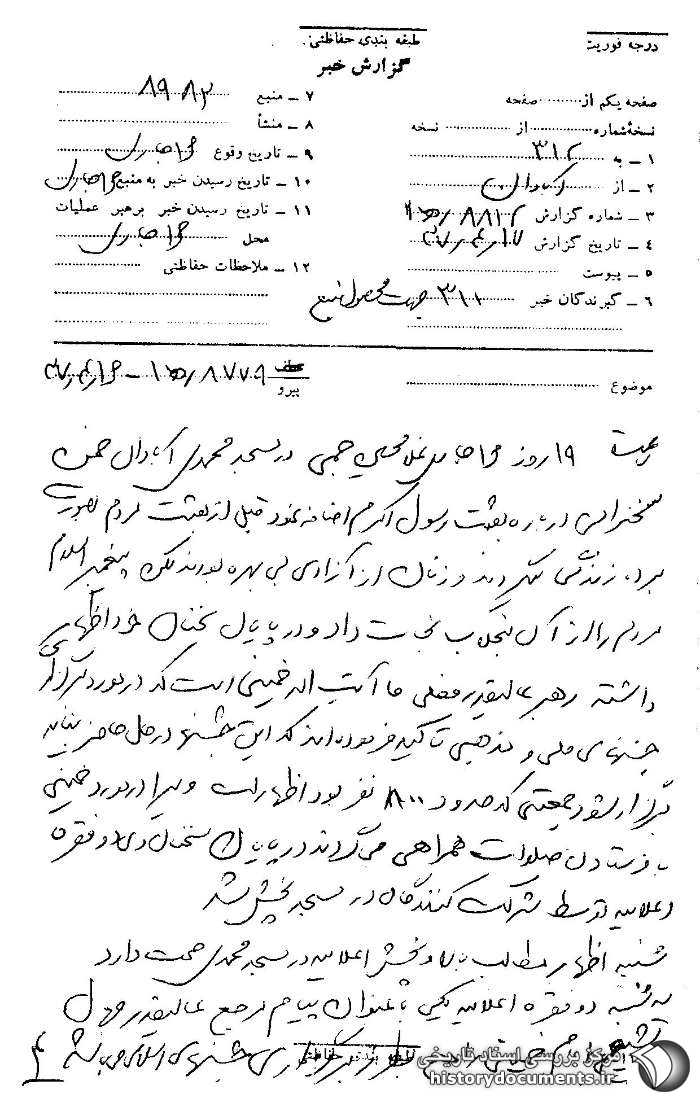 طبقه بندی حفاظتی:
درجه فوریت
گزارش خبر
صفحه یکم از .......... صفحه
نسخهٔ شماره .......... از .......... نسخه
۱ – به ۳۱۲
۲ – از
۳ – شماره گزارش
۴ – تاریخ گزارش
۵ – پیوست
۶ – گیرندگان خبر ۳۱۱ جهت محصول منبع
۷ – منبع ۸۹۸۳
۸ – منشأ
۹ – تاریخ وقوع
۱۰ – تاریخ رسیدن خبر به منبع
۱۱ – تاریخ رسیدن خبر برهبر عملیات
محل
۱۲ – ملاحظات حفاظتی
موضوع
پیرو
ساعت ۱۹ روز در مسجد محمدی ضمن
سخنرانی درباره بعثت رسول اکرم اضافه نمود قبل از بعثت مردم بصورت
برده زندگی میکردند و زنان از آزادی بی بهره بودند لکن پیغمبر اسلام
مردم را از آن منجلاب نجات داد و در پایان سخنان خود اظهار
داشته رهبر عالیقدر فعلی ما آیت اله خمینی است که در مورد برگزاری
جشنهای ملی و مذهبی تاکید فرموده‌اند که این جشنها در حال حاضر نباید
برگزار شود جمعیتی که حدود ۸۰۰ نفر بود اظهارات ویرا در مورد خمینی
با فرستادن صلوات همراهی می‌کردند در پایان سخنان وی دو فقره
اعلامیه توسط شرکت کنندگان در مسجد پخش شد
شنبه اظهار مطالب بالا و پخش اعلامیه در مسجد محمدی صحت دارد
یکشنبه دو فقره اعلامیه یکی با عنوان پیام مرجع عالیقدر جهان
تشیع امام خمینی برگزاری جشنهای اسلامی میباشد
طبقه بندی حفاظتی
مرکز بررسی اسناد تاریخی
historydocuments.ir